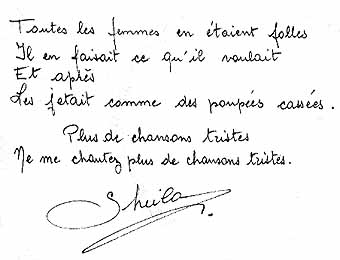 Toutes les femmes en étaient folles
Il en faisait ce qu'il voulait
Et après
Les jetait comme des poupées cassées.
Plus de chansons tristes
Ne me chantez plus de chansons tristes.
Sheila